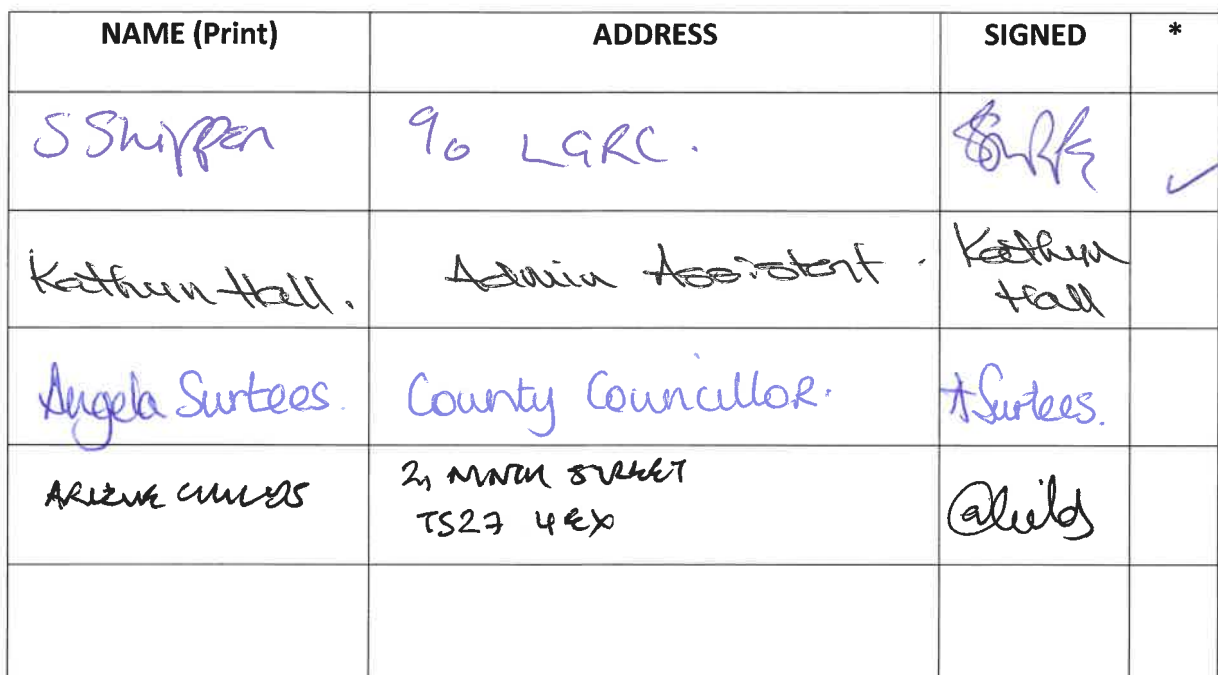 NAME (Print) ADDRESS SIGNED *
S Shippen c/o LGRC. ✓
Kathryn Hall. Admin Assistant. Kathryn
Hall
Angela Surtees. County Councillor. A Surtees.
2, STREET
TS27 4EX